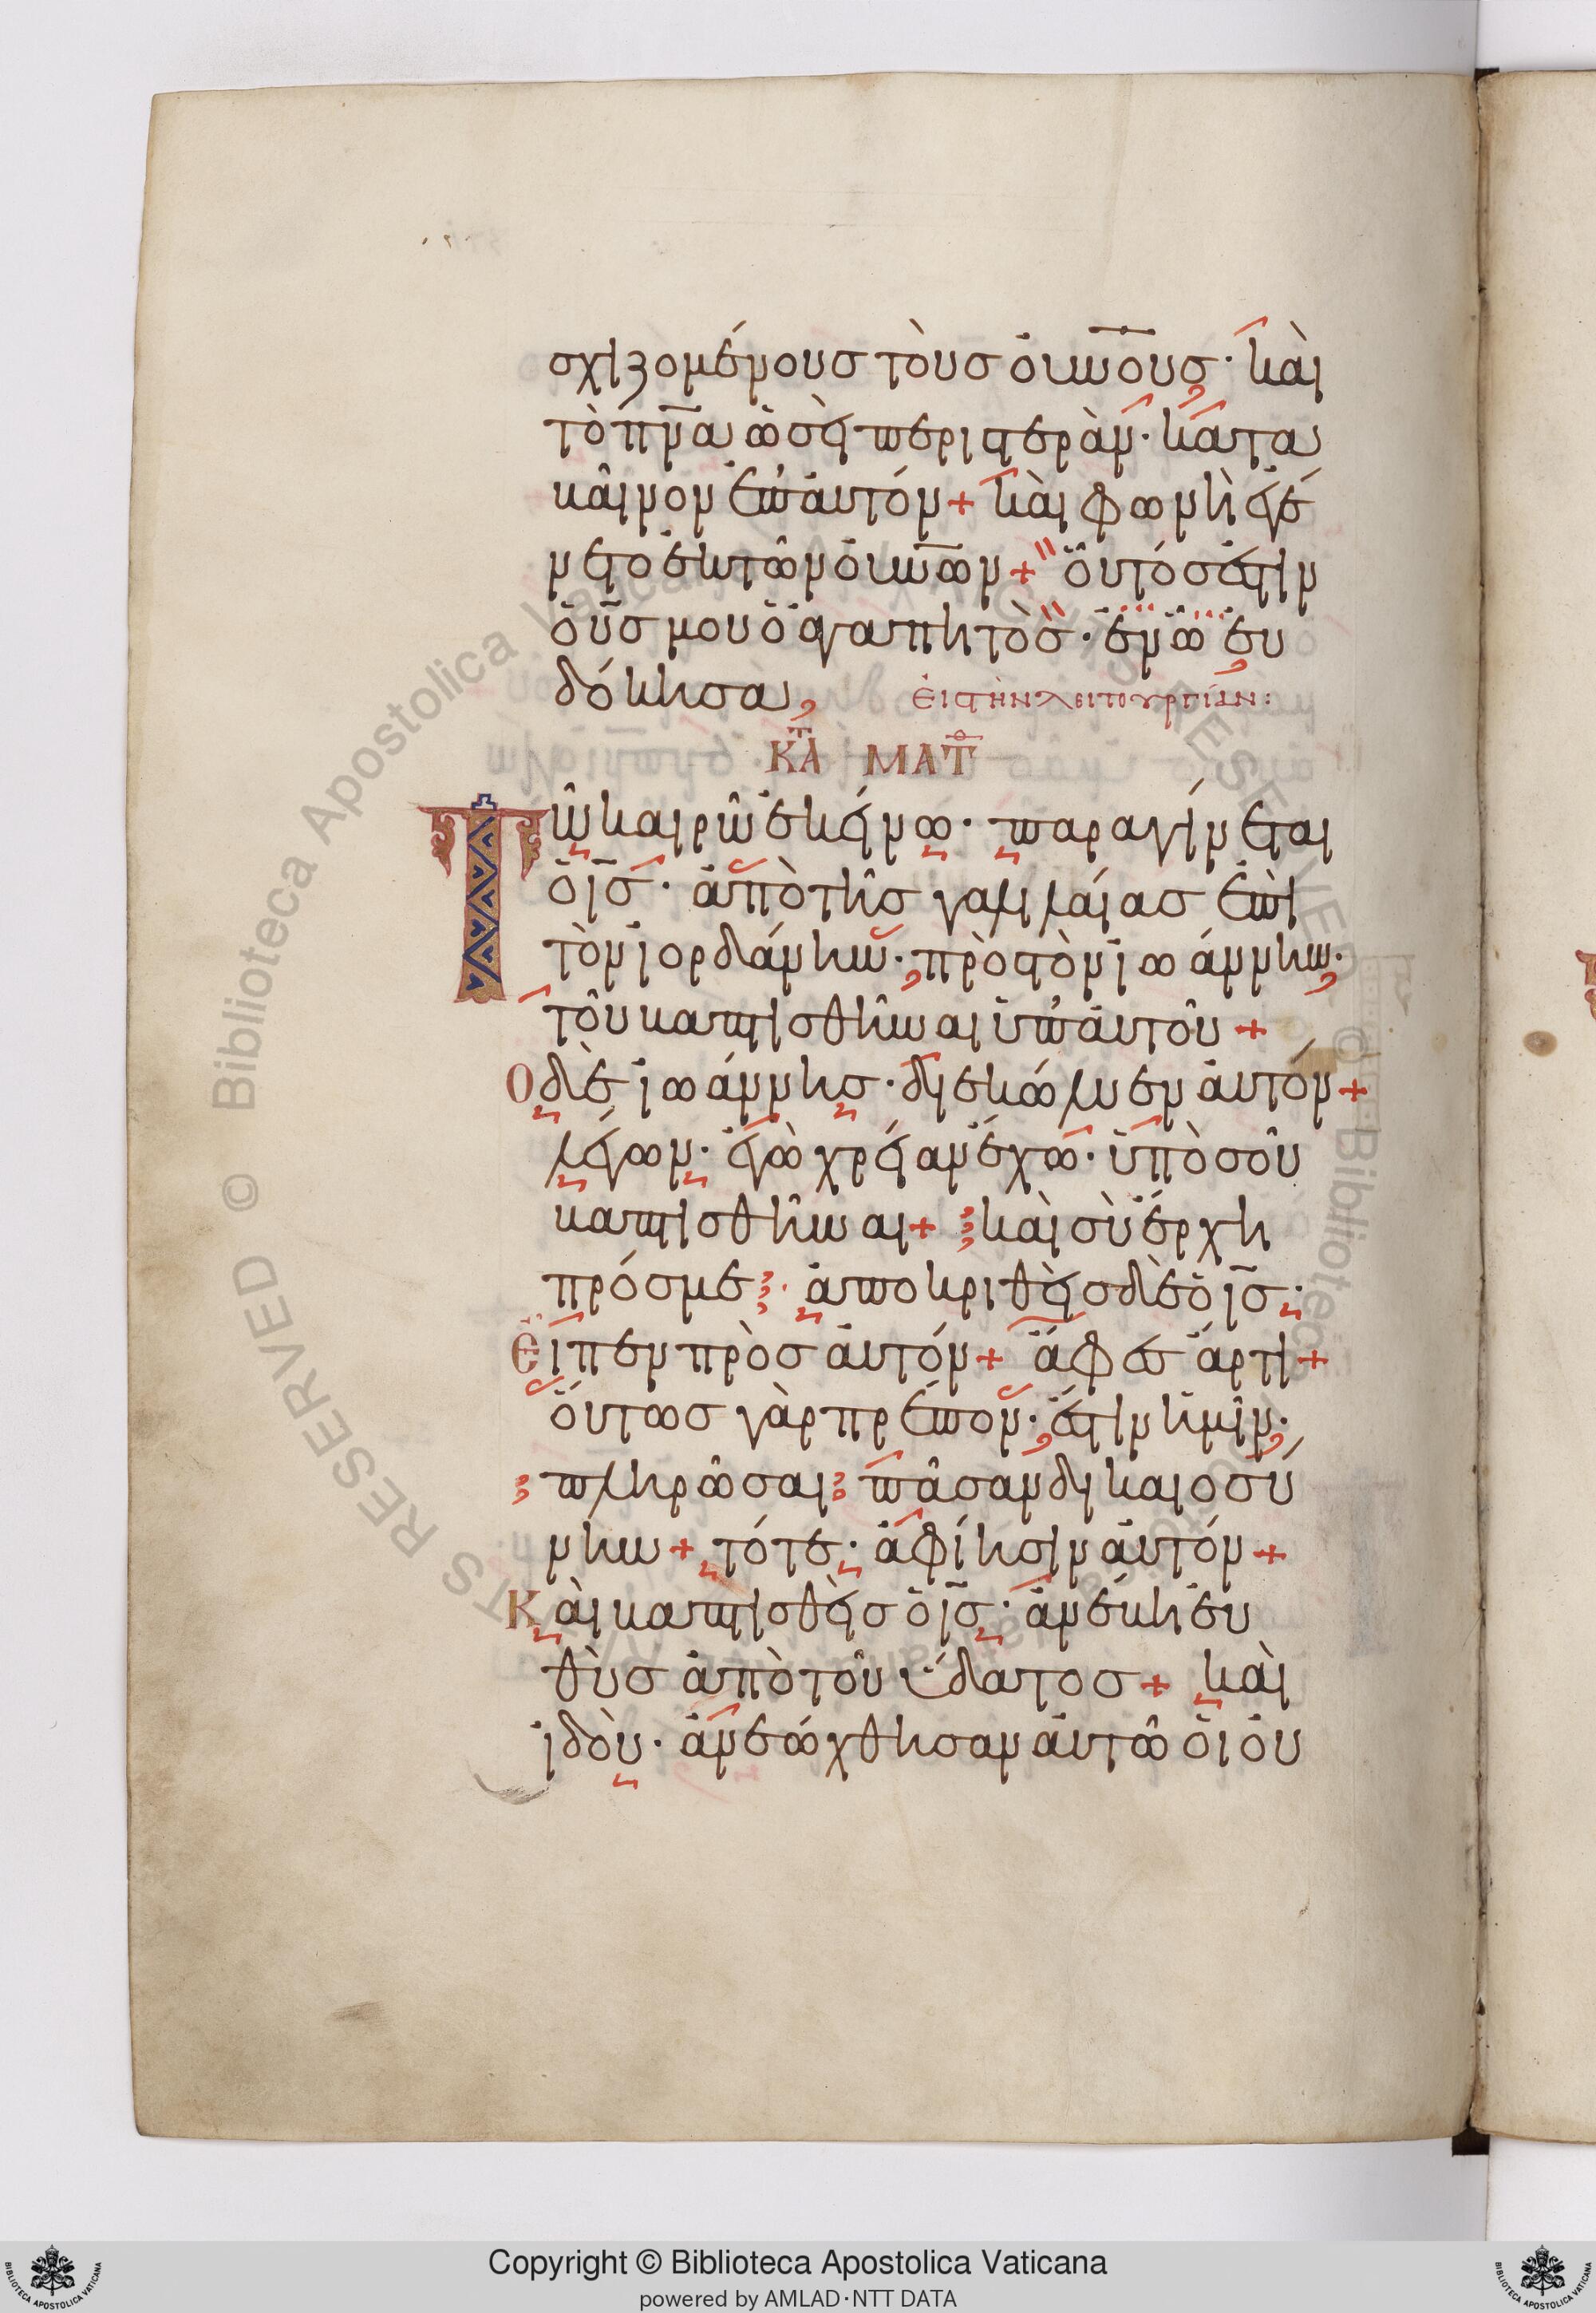 σχιζομένους τοὺς οὐνοὺς· καὶ
τὸ πνα ὡσεὶ περιστερὰν· κατα
βαῖνον ἐπ' αὐτόν + καὶ φωνὴ ἐγέ
νετο ἐκ τῶν οὐνων + οὗτός ἐστιν
ὁ υς μου ὁ ἀγαπητὸς· ἐν ὧ εὐ
δόκησα, εἰς τὴν λειτουργίαν:
Κατα ΜΑΤΘ
Τῶ καιρῶ ἐκείνω· παραγίνεται
ὁ ις· ἀπὸ τῆς γαλιλαίας ἐπὶ
τὸν ἰορδάνην· πρὸς τὸν ἰωάννην·
τοῦ βαπτισθῆναι ὑπ' αὐτοῦ +
Ο δὲ ἰωάννης· διεκώλυεν αὐτόν +
λέγων· ἐγὼ χρείαν ἔχω· ὑπὸ σοῦ
βαπτισθῆναι + καὶ σὺ ἔρχη
πρός με· ἀποκριθεὶς δὲ ὁ ις·
Εἶπεν πρὸς αὐτόν + ἄφες ἄρτι +
οὕτως γὰρ πρέπον· ἐστιν ἡμῖν·
πληρῶσαι πᾶσαν δικαιοσύ
νην + τότε· ἀφίησιν αὐτόν +
Καὶ βαπτισθεὶς ὁ ις· ἀνέβη εὐ
θὺς ἀπὸ τοῦ ὕδατος + καὶ
ἰδοὺ· ἀνεώχθησαν αὐτῶ οἱ οὐ
Copyright © Biblioteca Apostolica Vaticana
powered by AMLAD·NTT DATA